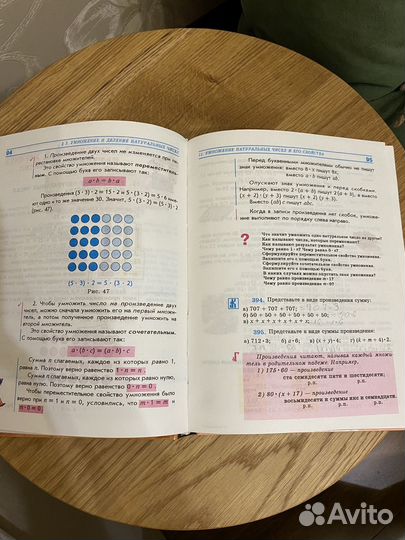 94
§ 3. УМНОЖЕНИЕ И ДЕЛЕНИЕ НАТУРАЛЬНЫХ ЧИСЕЛ
1. Произведение двух чисел не изменяется при пе-
рестановке множителей.
Это свойство умножения называют переместитель-
ным. С помощью букв его записывают так:
a · b = b · a
Произведения (5 · 3) · 2 = 15 · 2 и 5 · (3 · 2) = 5 · 6 имеют
одно и то же значение 30. Значит, 5 · (3 · 2) = (5 · 3) · 2
(рис. 47).
(5 · 3) · 2 = 5 · (3 · 2)
Рис. 47
2. Чтобы умножить число на произведение двух
чисел, можно сначала умножить его на первый множи-
тель, а потом полученное произведение умножить на
второй множитель.
Это свойство умножения называют сочетательным.
С помощью букв его записывают так:
a · (b · c) = (a · b) · c
Сумма n слагаемых, каждое из которых равно 1,
равна n. Поэтому верно равенство 1 · n = n.
Сумма n слагаемых, каждое из которых равно нулю,
равна нулю. Поэтому верно равенство 0 · n = 0.
Чтобы переместительное свойство умножения было
верно при n = 1 и n = 0, условились, что m · 1 = m и
m · 0 = 0
11. УМНОЖЕНИЕ НАТУРАЛЬНЫХ ЧИСЕЛ И ЕГО СВОЙСТВА
95
Перед буквенными множителями обычно не пишут
знак умножения: вместо 8 · x пишут 8x,
вместо a · b пишут ab.
Опускают знак умножения и перед скобками.
Например, вместо 2 · (a + b) пишут 2(a + b), а вместо
(x + 2) · (y + 3) пишут (x + 2)(y + 3).
Вместо (ab) c пишут abc.
Когда в записи произведения нет скобок, умноже-
ние выполняют по порядку слева направо.
?
Что значит умножить одно натуральное число на другое?
Как называют числа, которые перемножают?
Как называют результат умножения?
Чему равно 1 · n? Чему равно 0 · n?
Сформулируйте переместительное свойство умножения.
Запишите его с помощью букв.
Сформулируйте сочетательное свойство умножения.
Запишите его с помощью букв.
В каких случаях можно опускать знак умножения?
Чему равно произведение m · 1?
Чему равно произведение m · 0?
К
394. Представьте в виде произведения сумму:
а) 707 + 707 + 707;
б) 50 + 50 + 50 + 50 + 50;
395. Представьте в виде суммы произведение:
а) 712 · 3; б) a · 6; в) (x + y) · 4;
Произведения читают, называя каждый множи-
тель в родительном падеже. Например:
1) 175 · 60 — произведение
ста семидесяти пяти и шестидесяти;
р.п. р.п.
2) 80 · (x + 17) — произведение
восьмидесяти и суммы икс и семнадцати.
р.п. р.п. р.п.
Avito